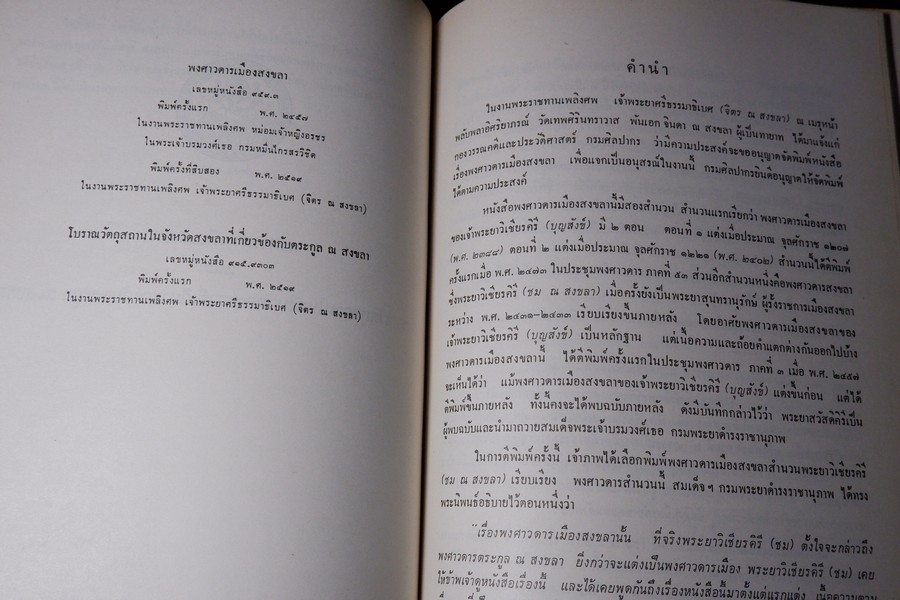 พงศาวดารเมืองสงขลา
เลขหมู่หนังสือ ๙๕๙.๓
พิมพ์ครั้งแรก พ.ศ. ๒๔๕๗
ในงานพระราชทานเพลิงศพ หม่อมเจ้าหญิงอรชร
ในพระเจ้าบรมวงศ์เธอ กรมหมื่นไกรสรวิชิต
พิมพ์ครั้งที่สิบสอง พ.ศ. ๒๕๑๙
ในงานพระราชทานเพลิงศพ เจ้าพระยาศรีธรรมาธิเบศ (จิตร ณ สงขลา)
โบราณวัตถุสถานในจังหวัดสงขลาที่เกี่ยวข้องกับตระกูล ณ สงขลา
เลขหมู่หนังสือ ๙๑๕.๙๓๐๓
พิมพ์ครั้งแรก พ.ศ. ๒๕๑๙
ในงานพระราชทานเพลิงศพ เจ้าพระยาศรีธรรมาธิเบศ (จิตร ณ สงขลา)
คำนำ
ในงานพระราชทานเพลิงศพ เจ้าพระยาศรีธรรมาธิเบศ (จิตร ณ สงขลา) ณ เมรุหน้า
พลับพลาอิศริยาภรณ์ วัดเทพศิรินทราวาส พันเอก จินดา ณ สงขลา ผู้เป็นทายาท ได้มาแจ้งแก่
กองวรรณคดีและประวัติศาสตร์ กรมศิลปากร ว่ามีความประสงค์จะขออนุญาตจัดพิมพ์หนังสือ
เรื่องพงศาวดารเมืองสงขลา เพื่อแจกเป็นอนุสรณ์ในงานนี้ กรมศิลปากรยินดีอนุญาตให้จัดพิมพ์
ได้ตามความประสงค์
หนังสือพงศาวดารเมืองสงขลานี้มีสองสำนวน สำนวนแรกเรียกว่า พงศาวดารเมืองสงขลา
ของเจ้าพระยาวิเชียรคิรี (บุญสังข์) มี ๒ ตอน ตอนที่ ๑ แต่งเมื่อประมาณ จุลศักราช ๑๒๐๗
(พ.ศ. ๒๓๘๘) ตอนที่ ๒ แต่งเมื่อประมาณ จุลศักราช ๑๒๒๑ (พ.ศ. ๒๔๐๒) สำนวนนี้ได้ตีพิมพ์
ครั้งแรกเมื่อ พ.ศ. ๒๔๗๓ ในประชุมพงศาวดาร ภาคที่ ๕๓ ส่วนอีกสำนวนหนึ่งคือพงศาวดารสงขลา
ซึ่งพระยาวิเชียรคิรี (ชม ณ สงขลา) เมื่อครั้งยังเป็นพระยาสุนทรานุรักษ์ ผู้รั้งราชการเมืองสงขลา
ระหว่าง พ.ศ. ๒๔๓๑–๒๔๓๓ เรียบเรียงขึ้นภายหลัง โดยอาศัยพงศาวดารเมืองสงขลาของ
เจ้าพระยาวิเชียรคิรี (บุญสังข์) เป็นหลักฐาน แต่เนื้อความและถ้อยคำแตกต่างกันออกไปบ้าง
พงศาวดารเมืองสงขลานี้ ได้ตีพิมพ์ครั้งแรกในประชุมพงศาวดาร ภาคที่ ๓ เมื่อ พ.ศ. ๒๔๕๗
จะเห็นได้ว่า แม้พงศาวดารเมืองสงขลาของเจ้าพระยาวิเชียรคิรี (บุญสังข์) แต่งขึ้นก่อน แต่ได้
ตีพิมพ์ขึ้นภายหลัง ทั้งนี้คงจะได้พบฉบับภายหลัง ดังมีบันทึกกล่าวไว้ว่า พระยาสวัสดิคิรีเป็น
ผู้พบฉบับและนำมาถวายสมเด็จพระเจ้าบรมวงศ์เธอ กรมพระยาดำรงราชานุภาพ
ในการตีพิมพ์ครั้งนี้ เจ้าภาพได้เลือกพิมพ์พงศาวดารเมืองสงขลาสำนวนพระยาวิเชียรคิรี
(ชม ณ สงขลา) เรียบเรียง พงศาวดารสำนวนนี้ สมเด็จฯ กรมพระยาดำรงราชานุภาพ ได้ทรง
พระนิพนธ์อธิบายไว้ตอนหนึ่งว่า
"เรื่องพงศาวดารเมืองสงขลานั้น ที่จริงพระยาวิเชียรคิรี (ชม) ตั้งใจจะกล่าวถึง
พงศาวดารตระกูล ณ สงขลา ยิ่งกว่าจะแต่งเป็นพงศาวดารเมือง พระยาวิเชียรคิรี (ชม) เคย
ให้ข้าพเจ้าดูหนังสือเรื่องนี้ และได้เคยพูดกันถึงเรื่องหนังสือนี้มาตั้งแต่แรกแต่ง เนื้อความตาม